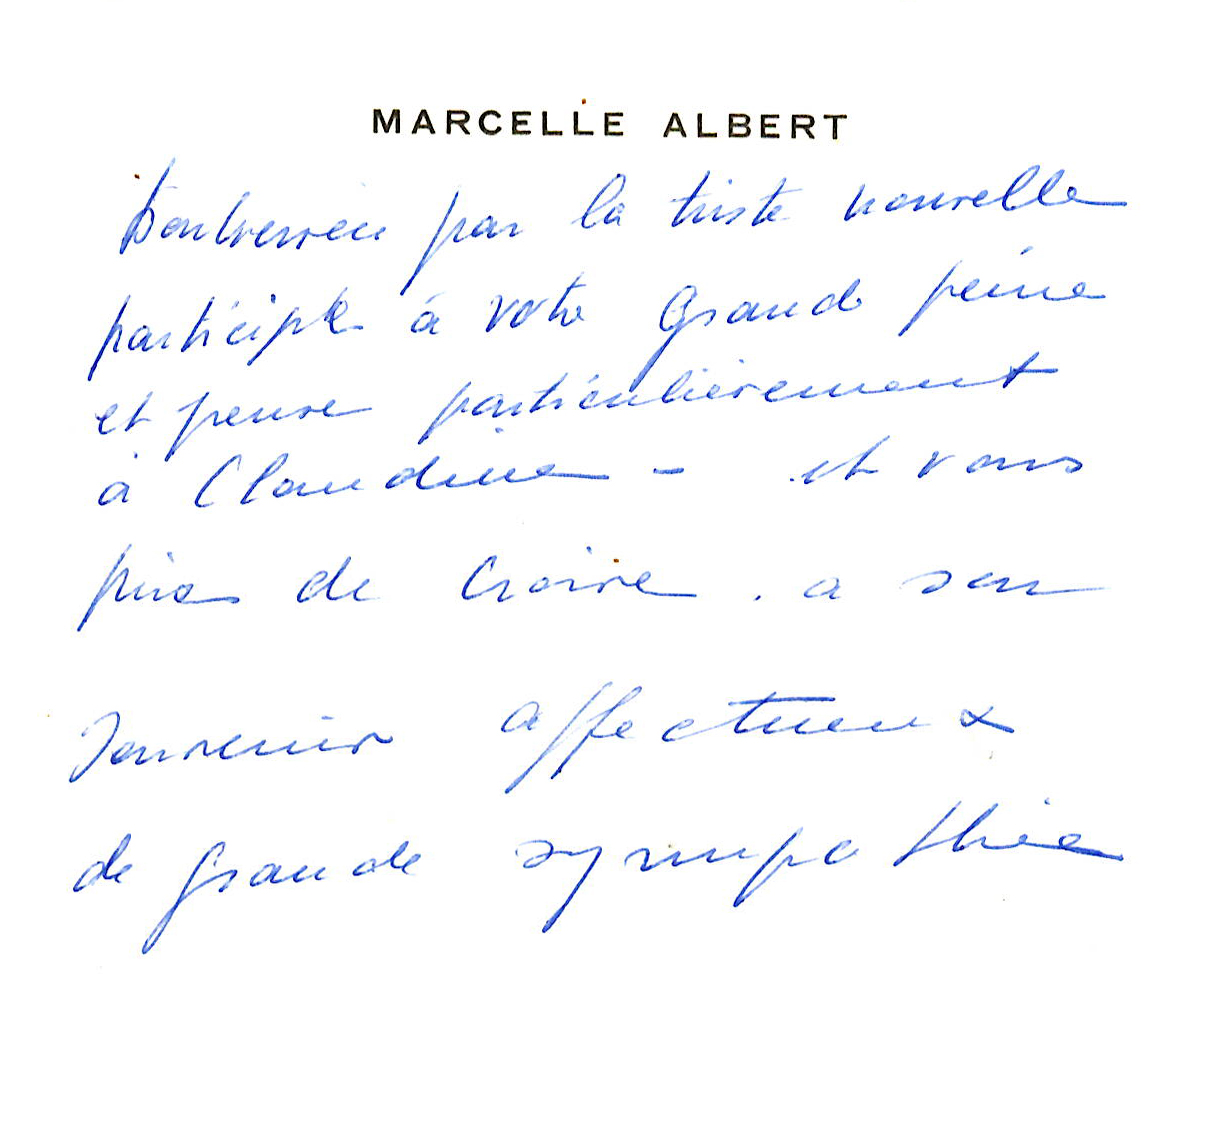 MARCELLE ALBERT
bouleversée par la triste nouvelle
participe à votre Grande peine
et pense particulièrement
à Claudine - et vous
prie de croire . a son
Souvenir affectueux
de grande sympathie